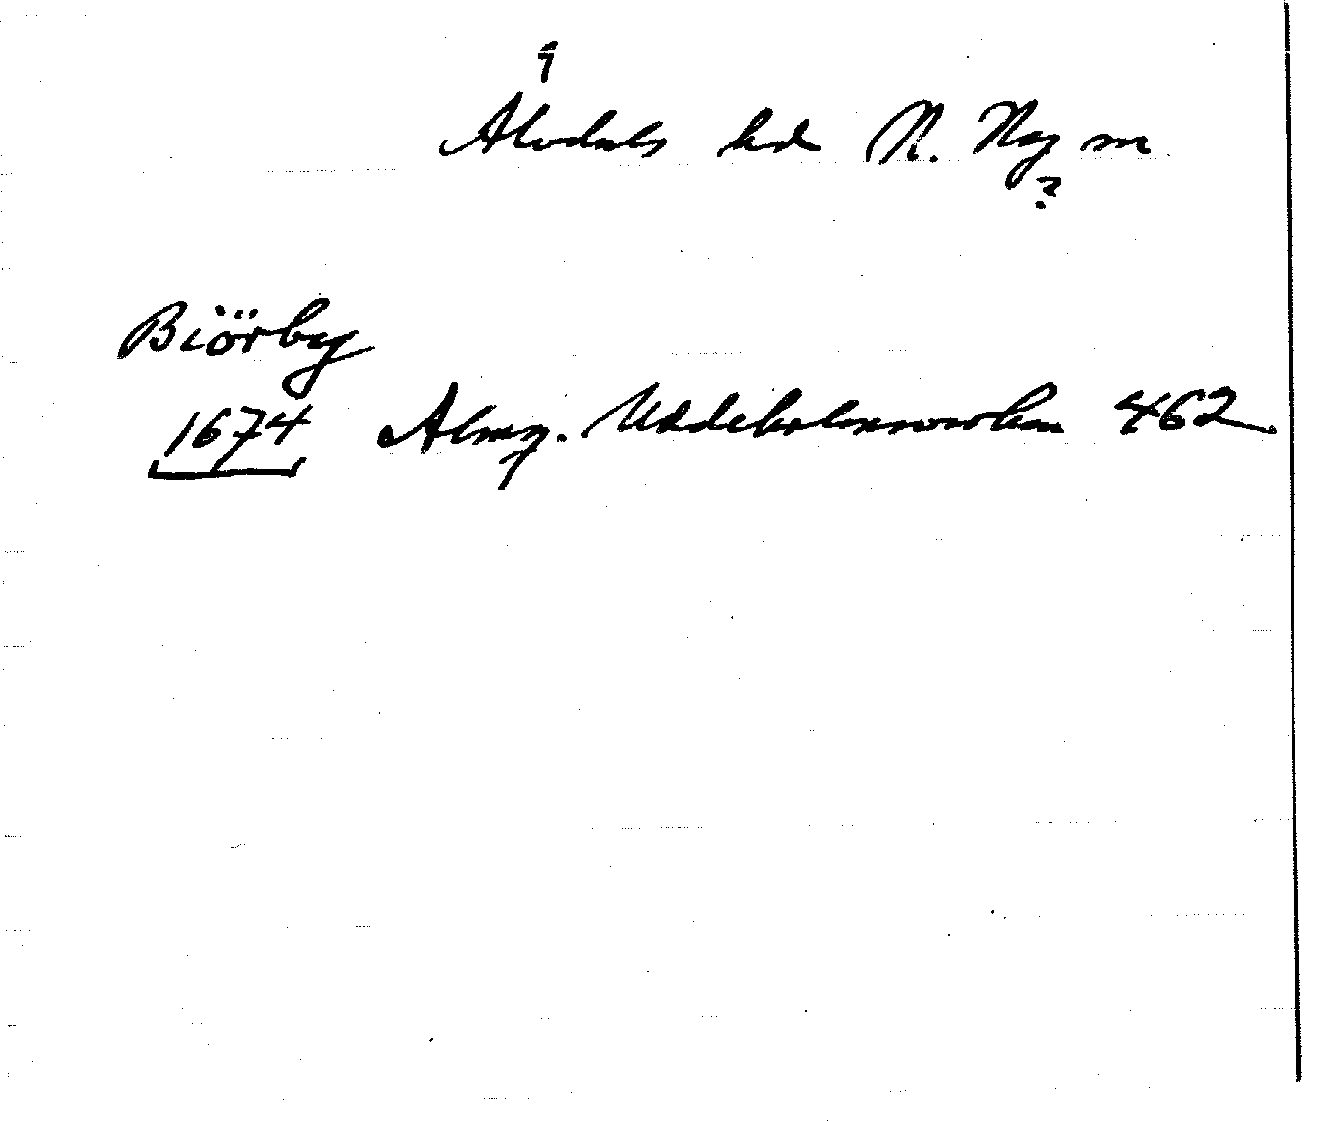 Älvdals hd N. Ny sn
?
Biörby
1674 Almq. Uddeholmsverken 462